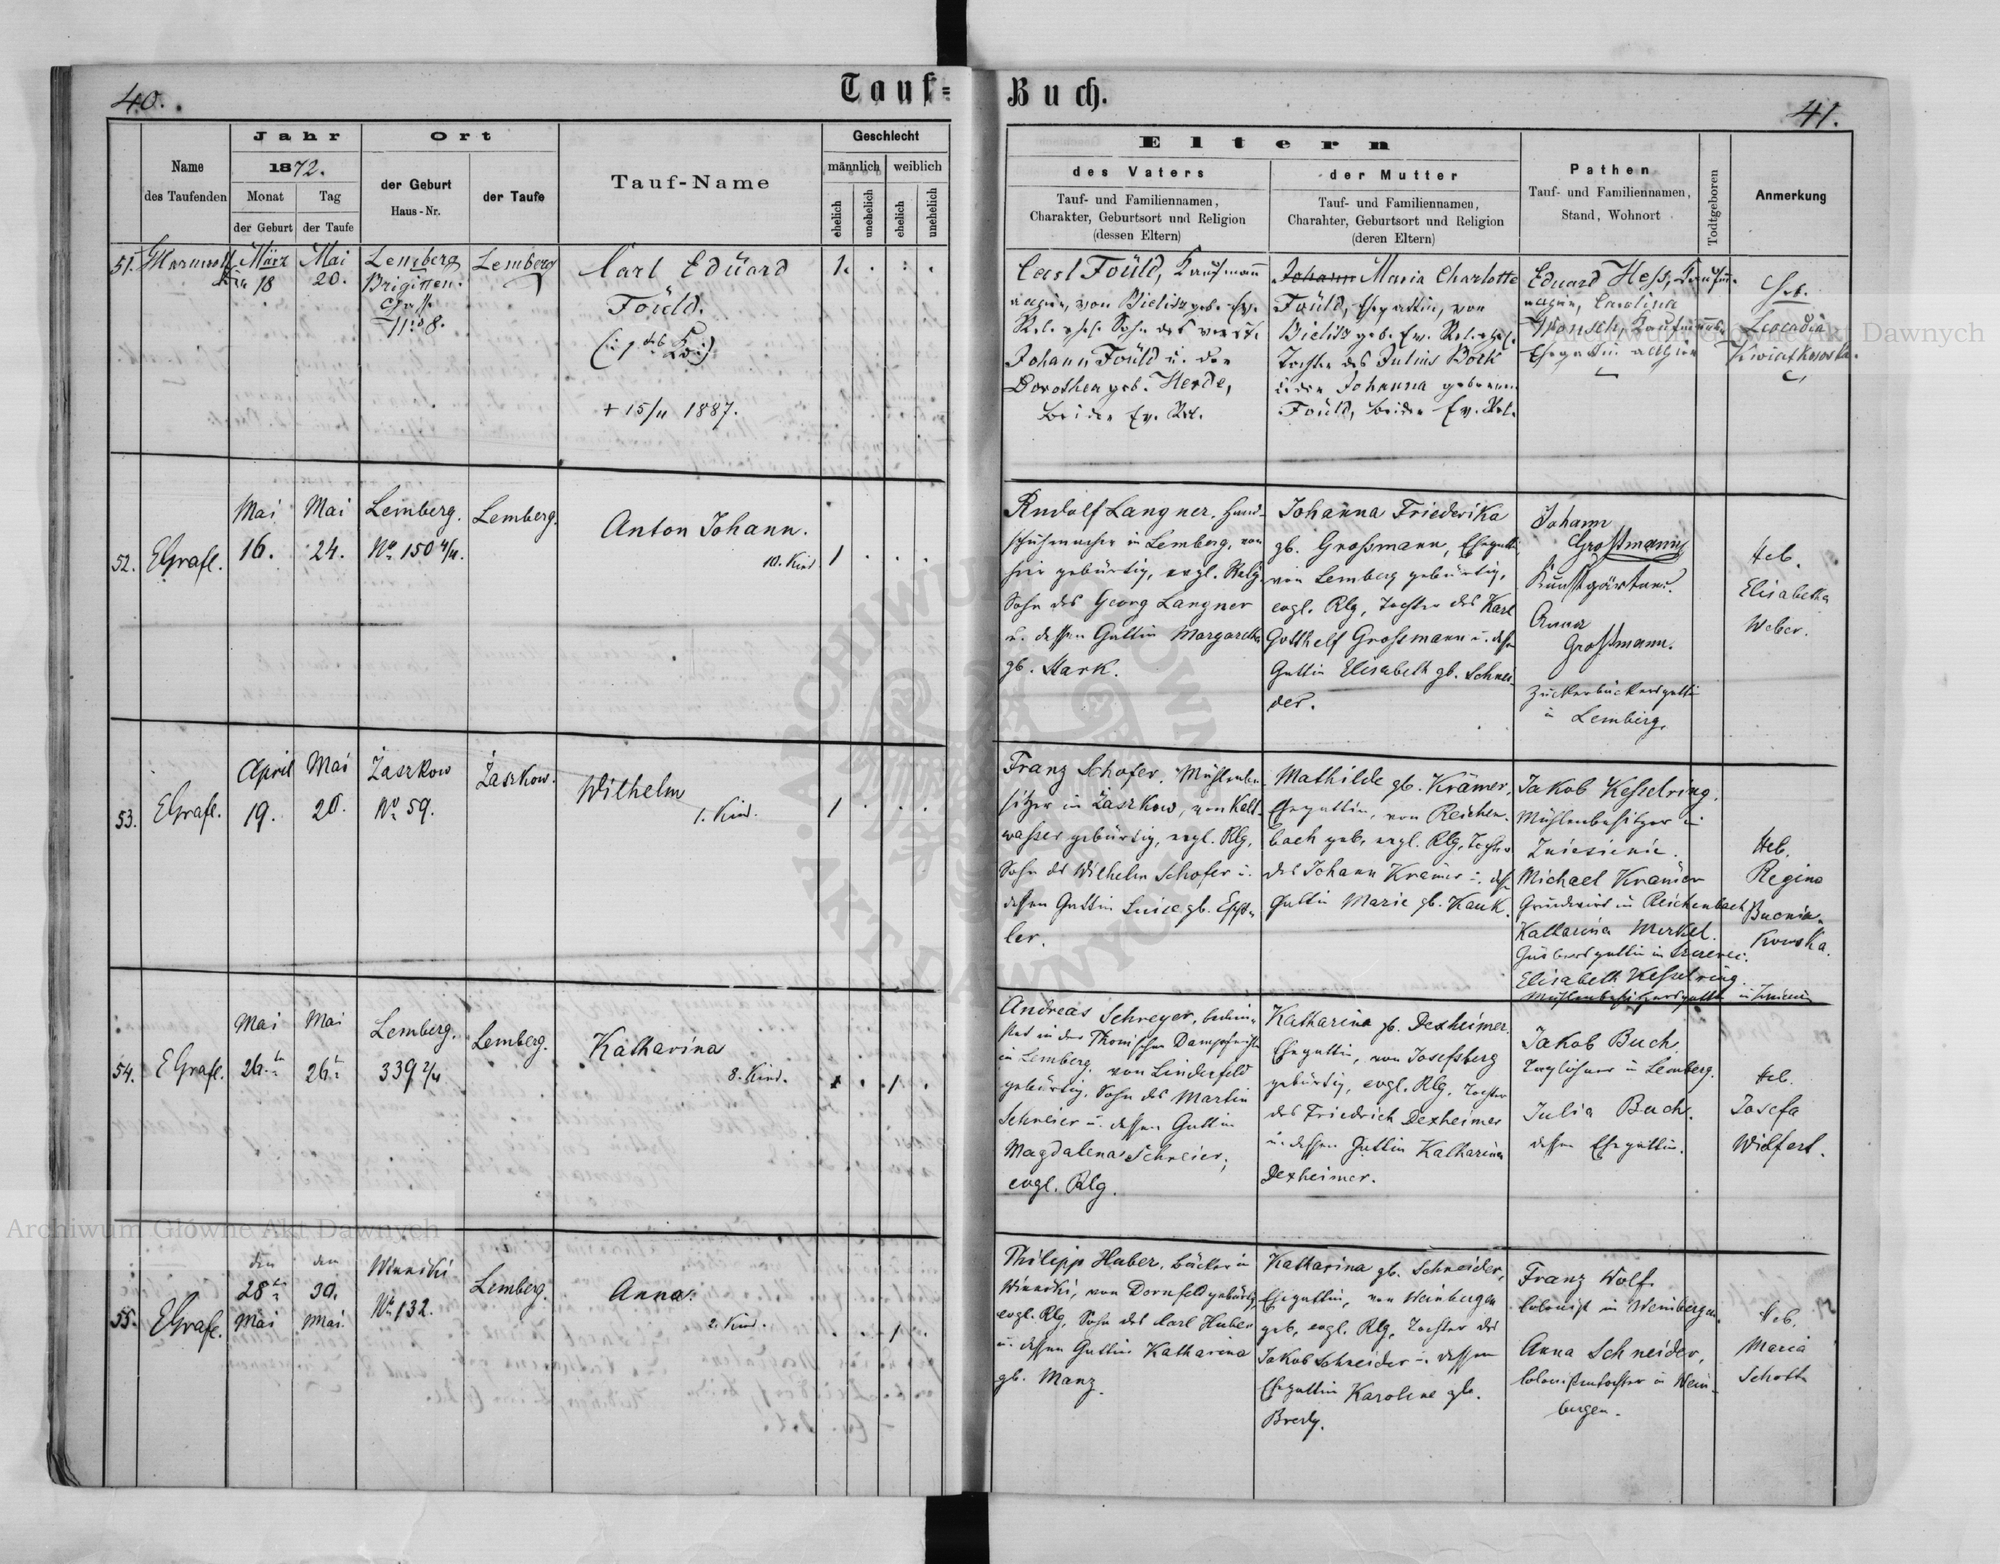 40.
Tauf=
Buch.
41.
Name
des Taufenden
Jahr
1872.
Monat
der Geburt
Tag
der Taufe
Ort
der Geburt
Haus-Nr.
der Taufe
Tauf-Name
Geschlecht
männlich
weiblich
ehelich
unehelich
ehelich
unehelich
Eltern
des Vaters
Tauf- und Familiennamen,
Charakter, Geburtsort und Religion
(dessen Eltern)
der Mutter
Tauf- und Familiennamen,
Charahter, Geburtsort und Religion
(deren Eltern)
Pathen
Tauf- und Familiennamen,
Stand, Wohnort
Todtgeboren
Anmerkung
51.
März
18
Mai
20.
Lemberg
Brigitten-
Gasse
Nro 8.
Lemberg
Carl Eduard
Föuld.
+ 15/11 1887.
1.
Carl Föuld, Kaufmann
von Bielitz geb. Ev.
Rel. ehel. Sohn des verst.
Johann Föuld u. der
Dorothea geb. Herde,
beider Ev. Rel.
Johann Maria Charlotte
Föuld, Ehegattin, von
Bielitz geb. Ev. Rel. ehel.
Tochter des Julius Bork
u. der Johanna geborenen
Föuld, beider Ev. Rel.
Eduard Hess, Kaufm.
Carolina
Kaufmanns-
Ehegattin allhier
Heb.
Leocadia
Kwiatkowska.
52.
EGrafl.
Mai
16.
Mai
24.
Lemberg.
No 150 4/4.
Lemberg.
Anton Johann.
10. Kind
1
Rudolf Langner, Hand-
schuhmacher in Lemberg, von
hier gebürtig, evgl. Relg.
Sohn des Georg Langner
u. dessen Gattin Margaretha
gb. Stark.
Johanna Friederika
gb. Großmann, Ehegattin
von Lemberg gebürtig,
evgl. Rlg, Tochter des Karl
Gotthelf Großmann u. dess.
Gattin Elisabeth gb. Schnei-
der.
Johann
Großmann
Kunstgärtner.
Anna
Großmann.
Zuckerbäckersgattin
in Lemberg.
Heb.
Elisabetha
Weber.
53.
EGrafl.
April
19.
Mai
20.
Zaszkow
No 59.
Zaszkow.
Wilhelm
1. Kind.
1
Franz Schofer, Mühlenbe-
sitzer in Zaszkow, von Kalt-
wasser gebürtig, evgl. Rlg,
Sohn ds Wilhelm Schofer u.
dessen Gattin Luise gb. Epp-
ler.
Mathilde gb. Krämer,
Ehegattin, von Reichen-
bach geb, evgl. Rlg, Tochter
des Johann Krämer u. dess.
Gattin Marie gb. Kauk.
Jakob Kesselring,
Mühlenbesitzer in
Zniesienie.
Michael Krämer
Grundwirt in Reichenbach
Katharina Merkel.
Elisabeth Kesselring
Mühlenbesitzersgattin in Zniesienie
Heb.
Regina
54.
EGrafl.
Mai
26.
Mai
26.
Lemberg.
339 2/4
Lemberg.
Katharina
8. Kind.
1
Andreas Schreyer, bedien-
stet in der Thomischen Dampfmühle
in Lemberg, von Linderfeld
gebürtig, Sohn des Martin
Schreier u. dessen Gattin
Magdalena Schreier,
evgl. Rlg.
Katharina gb. Dexheimer,
Ehegattin, von Josefsberg
gebürtig, evgl. Rlg, Tochter
des Friedrich Dexheimer
u. dessen Gattin Katharina
Dexheimer.
Jakob Buch
Taglöhner in Lemberg.
Julia Buch.
dessen Ehegattin.
Heb.
Josefa
Wolfert.
55.
EGrafl.
den
28ten
Mai
den
30.
Mai.
Winniki
No 132.
Lemberg.
Anna.
2. Kind.
1
Philipp Huber, Bäcker in
Winniki, von Dornfeld gebürtig,
evgl. Rlg, Sohn des Karl Huber
u. dessen Gattin Katharina
gb. Manz.
Katharina gb. Schneider,
Ehegattin, von Weinbergen
geb, evgl. Rlg, Tochter des
Jakob Schneider u. dessen
Ehegattin Karoline gb.
Franz Wolf.
Colonist in Weinbergen.
Anna Schneider,
Colonistentochter in Wein-
bergen.
Heb.
Maria
Schott
Archiwum Główne Akt Dawnych
Archiwum Główne Akt Dawnych